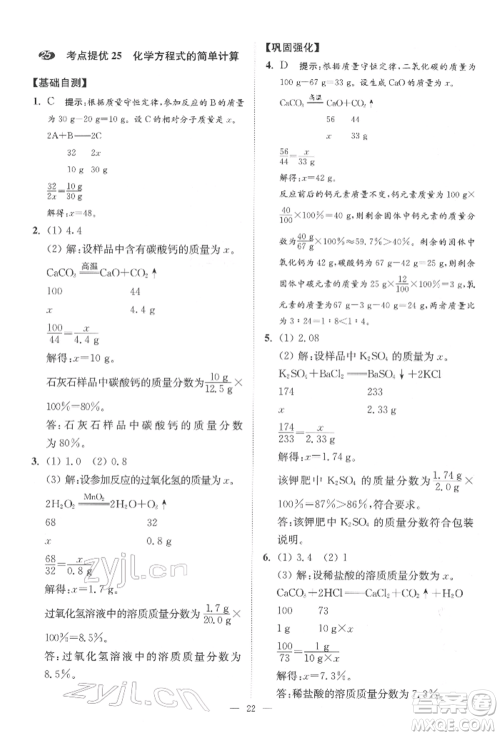 25 考点提优25 化学方程式的简单计算
【基础自测】
1. C 提示:根据质量守恒定律,参加反应的
B的质量=30g-20g=10g。设C的相对分子质量是x。
2A+B══2C
32 2x
10 g 30 g
32/2x=10 g/30 g
解得:x=48。
2. (1) 4.4
(2) 解:设样品中含有碳酸钙的质量为x。
CaCO₃ 高温══ CaO+CO₂↑
100 44
x 4.4 g
100/44=x/4.4 g
解得:x=10 g。
石灰石样品中碳酸钙的质量分数为10 g/12.5 g×
100%=80%。
答:石灰石样品中碳酸钙的质量分数
为80%。
3. (1) 1.0 (2) 0.8
(3) 解:设参加反应的过氧化氢的质量为x。
2H₂O₂ MnO₂══ 2H₂O+O₂↑
68 32
x 0.8 g
68/32=x/0.8 g
解得:x=1.7 g。
过氧化氢溶液中溶质质量分数为1.7 g/20 g×
100%=8.5%。
答:过氧化氢溶液中的溶质质量分数为
8.5%。
【巩固强化】
4. D 提示:根据质量守恒定律,二氧化碳的质量为
CaCO₃ 高温══ CaO+CO₂↑
56 44
x
解得:
反应前后的钙元素质量不变,钙元素的质量为
40/100×100%=40 g,则剩余固体中钙元素的质量分
数为40 g/67 g×100%≈59.7%。剩余固体中
碳元素的质量为25 g×12/100×100%=3 g,氧
元素的质量为67 g-40 g-3 g=24 g,则剩余固体中碳元素与氧元素的质量之比为
3∶24=1∶8<1∶4。
5. (1) 2.08
(2) 解:设样品中K₂SO₄的质量为x。
K₂SO₄+BaCl₂══BaSO₄↓+2KCl
174 233
x 2.33 g
174/233=x/2.33 g
解得:x=1.74 g。
该钾肥中K₂SO₄的质量分数为1.74 g/2 g×
100%=87%>86%,符合包装说明。
答:该钾肥中K₂SO₄的质量分数符合包装说
明。
6. (1) 3.4 (2) 1
(3) 解:设稀盐酸的溶质质量分数为x。
CaCO₃+2HCl══CaCl₂+CO₂↑+H₂O
100 73
1 g
100/73=
解得:x=7.3%
答:稀盐酸的溶质质量分数为7.3%。
22
zyjl.cn
zyjl.cn